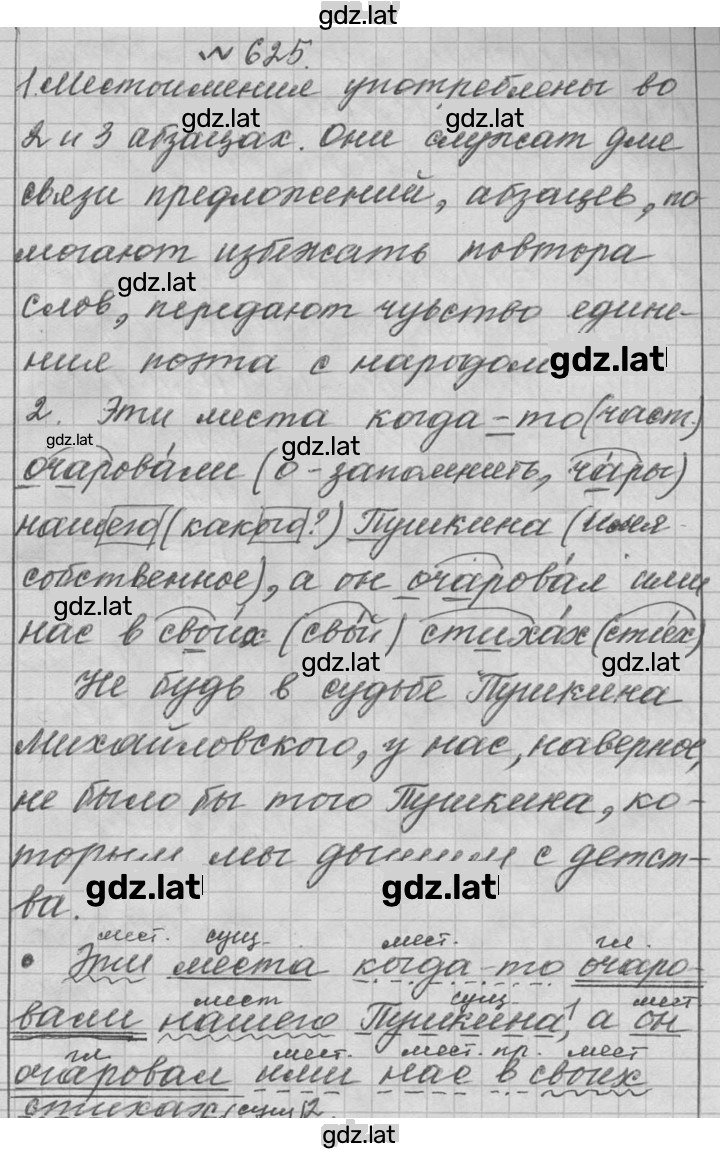 gdz.lat
№ 625.
1. Местоимения употреблены во
gdz.lat gdz.lat
2 и 3 абзацах. Они служат для
связи предложений, абзацев, по-
могают избежать повтора
gdz.lat
слов, передают чувство едине-
ния поэта с народом gdz.lat
2. Эти места когда-то (част.)
gdz.lat gdz.lat
очарова́ли (о-запомнить, ча́ры)
нашего (какого?) Пушкина (имя
собственное), а он очарова́л ими
gdz.lat
нас в свои́х (свой) стиха́х (сти́х)
gdz.lat gdz.lat
Не будь в судьбе Пушкина
Михайловского, у нас, наверное,
не было бы того Пушкина, ко-
торым мы дышим с детст-
gdz.lat gdz.lat
ва.
мест. сущ. мест. гл.
• Эти места когда-то очаро-
мест сущ. мест
вали нашего Пушкина,¹ а он
гл мест. мест. пр. мест
очаровал ими нас в своих
стихах (сущ) 2.
gdz.lat